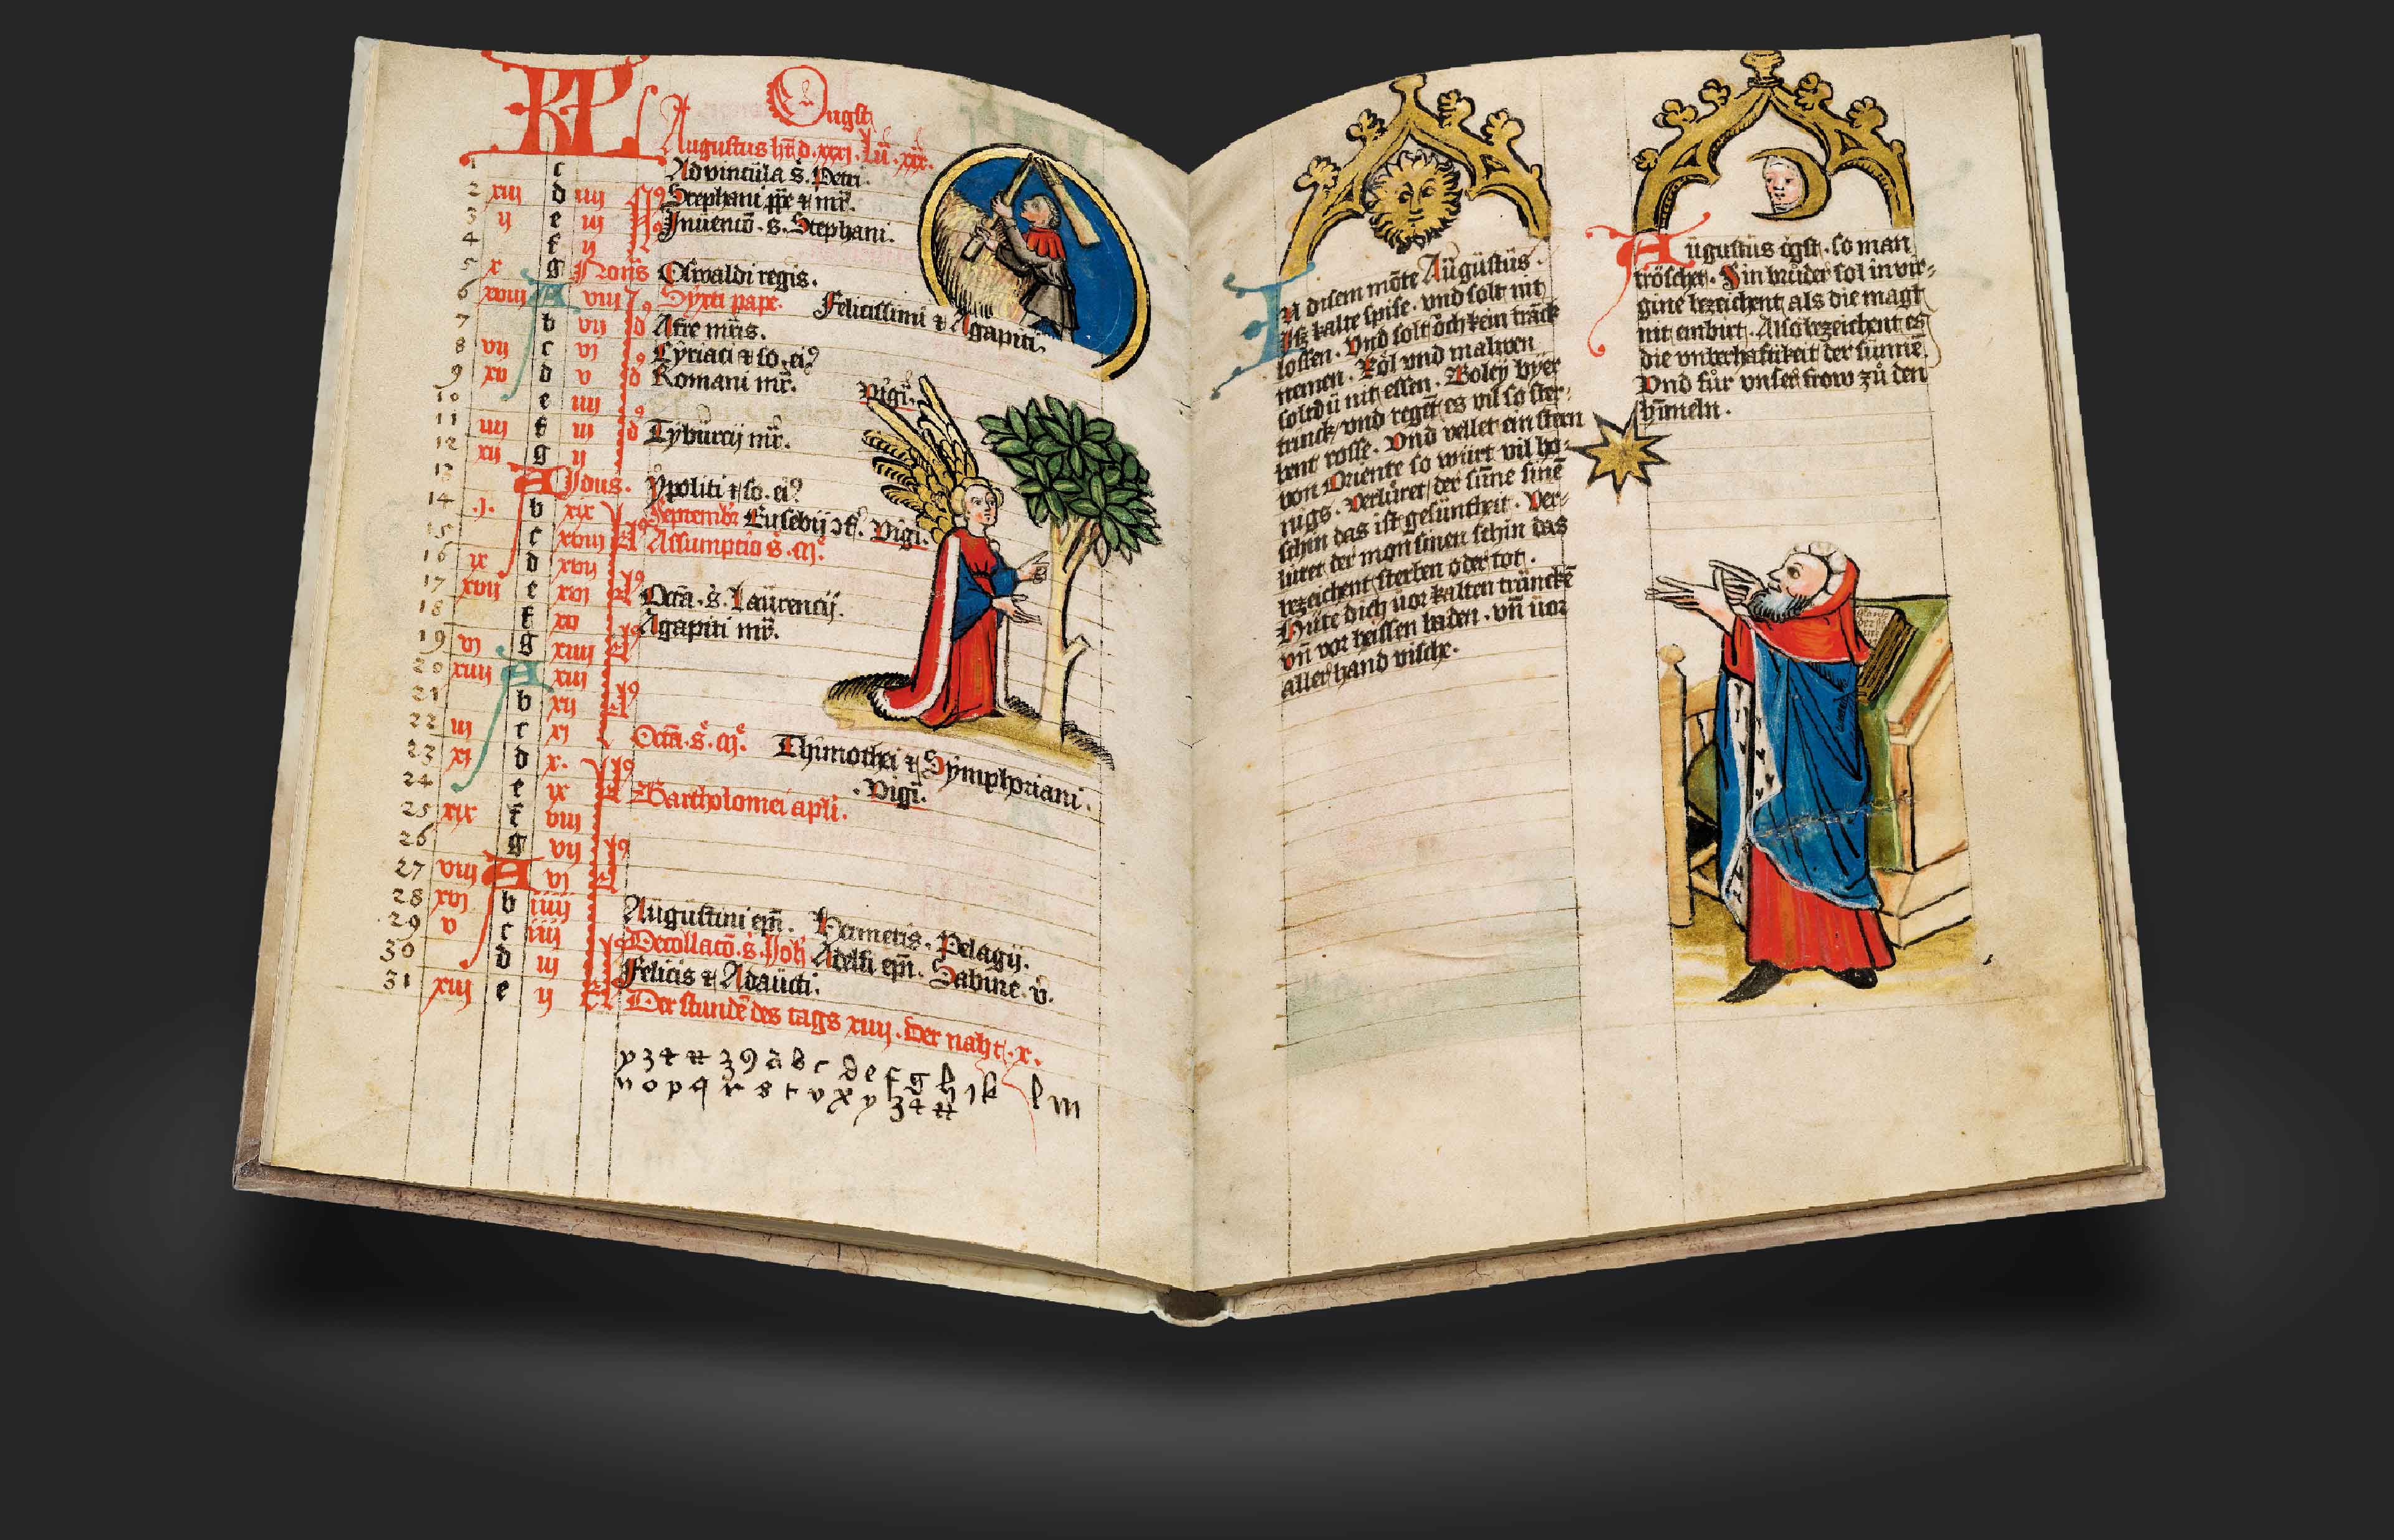 KL Ougst
Augustus hñ d. xxxj. Lũ. xix.
1 c Ad vincula s. Petri.
2 xiij d iiij Stephani ꝑpe ⁊ mr̃.
3 ij e iij Inuencõ. s. Stephani.
4 f ij
5 x g Nonis Oswaldi regis.
6 xviij A viij Syxti pape. Felicissimi ⁊ Agapiti.
7 b vij Afre mr̃is.
8 vij c vj Cyriaci ⁊ so. eiꝰ
9 xv d v Romani mr̃. Vigi͛.
10 e iiij
11 iiij f iij Tyburcij mr̃.
12 xij g ij
13 A Idus. Ypoliti ⁊ so. eiꝰ
14 .j. b xix Septembr̃ Eusebij ꝯf. Vigi͛.
15 c xviij Assumptio s. m͛e.
16 ix d xvij
17 xvij e xvj Octã. s. Laurencij.
18 f xv Agapiti mr̃.
19 vj g xiiij
20 xiiij A xiij
21 b xij
22 iij c xj Octã. s. m͛e. Thimothei ⁊ Symphoriani.
23 xj d x. Vigi͛.
24 e ix Bartholomei apl̃i.
25 xix f viij
26 g vij
27 viij A vj
28 xvj b iiiij Augustini ep̃i. Hermetis. Pelagij.
29 v c iiij Decollacõ. s. Joh̃ Adelfi ep̃i. Sabine. v̉.
30 d iij Felicis ⁊ Adaucti.
31 xiij e ij Kl Der stundẽ des tags xiiij. Der naht. x.
y z ⁊ a b c d e f g h i k l m
n o p q r s t v x y z ⁊
In disem mõte Augustus.
Iſz kalte spise. vnd solt nit
lossen. Vnd solt ôch kein tränck
nemen. Köl vnd malwen
solt dü nit essen. Boley byer
trinck, vnd regẽt es vil so ster-
bent rosse. Vnd vellet ein stern
von Oriente so würt vil ho-
nigs. Verluret der sũne sinẽ
schin das ist gesuntheit. Ver-
luret der mon sinen schin das
bezeichent sterben oder tot.
Hüte dich uor kalten tränckẽ
vñ vor heissen baden. vñ uor
aller hand vische.
Augustus ôgst. so man
tröschet. Sin brüder sol in vir-
gine bezeichent als die magt
nit enbirt. Also bezeichent es
die vnberhaftikeit der sunnẽ.
Vnd für vnser frow zů den
hymeln.